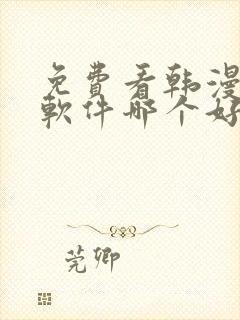 免费看韩漫
软件哪个好
莞卿